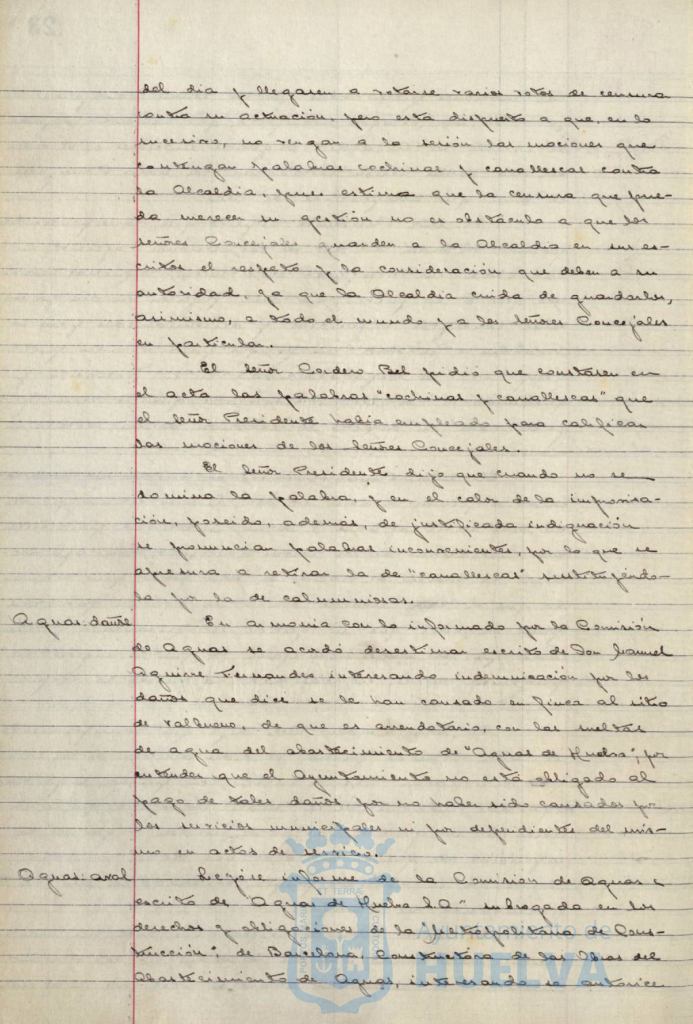 del dia y llegasen a votarse varios votos de censura
contra su actuación, pero está dispuesto a que, en lo
sucesivo, no vengan a la sesión las mociones que
contengan palabras cochinas y canallescas contra
la Alcaldia, pues estima que la censura que pue-
da merecer su gestión no es obstáculo a que los
señores Concejales guarden a la Alcaldia en sus es-
critos el respeto y la consideración que deben a su
autoridad, ya que la Alcaldia cuida de guardarlos,
asimismo, a todo el mundo y a los señores Concejales
en particular.
El señor Cordero Bel pidió que constasen en
el acta las palabras "cochinas y canallescas" que
el Señor Presidente había empleado para calificar
las mociones de los Señores Concejales.
El Señor Presidente dijo que cuando no se
domina la palabra, y en el calor de la improvisa-
ción, poseido, además, de justificada indignación
se pronuncian palabras inconvenientes, por lo que se
apresura a retirar la de "canallescas" sustituyéndo-
la por la de calumniosas.
Aguas: daños
En armonia con lo informado por la Comisión
de Aguas se acordó desestimar escrito de Don Manuel
Aguirre Fernandes interesando indemnización por los
daños que dice se le han causado en finca al sitio
de Valbueno, de que es arrendatario, con las sueltas
de agua del abastecimiento de "Aguas de Huelva", por
entender que el Ayuntamiento no está obligado al
pago de tales daños por no haber sido causados por
los servicios municipales ni por dependientes del mis-
mo en actos de servicio.
Aguas: aval
Leyóse informe de la Comisión de Aguas a
escrito de "Aguas de Huelva S.A" subrogada en los
derechos y obligaciones de la "Metropolitana de Cons-
trucción", de Barcelona, Constructora de las Obras del
Abastecimiento de Aguas, interesando se autorice
Ayuntamiento de
HUELVA